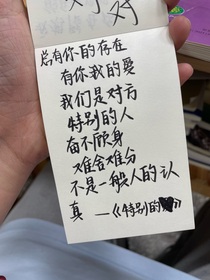 总有你的存在
有你我的爱
我们是对方
特别的人
奋不顾身
难舍难分
不是一般人的认
真 —《特别的》